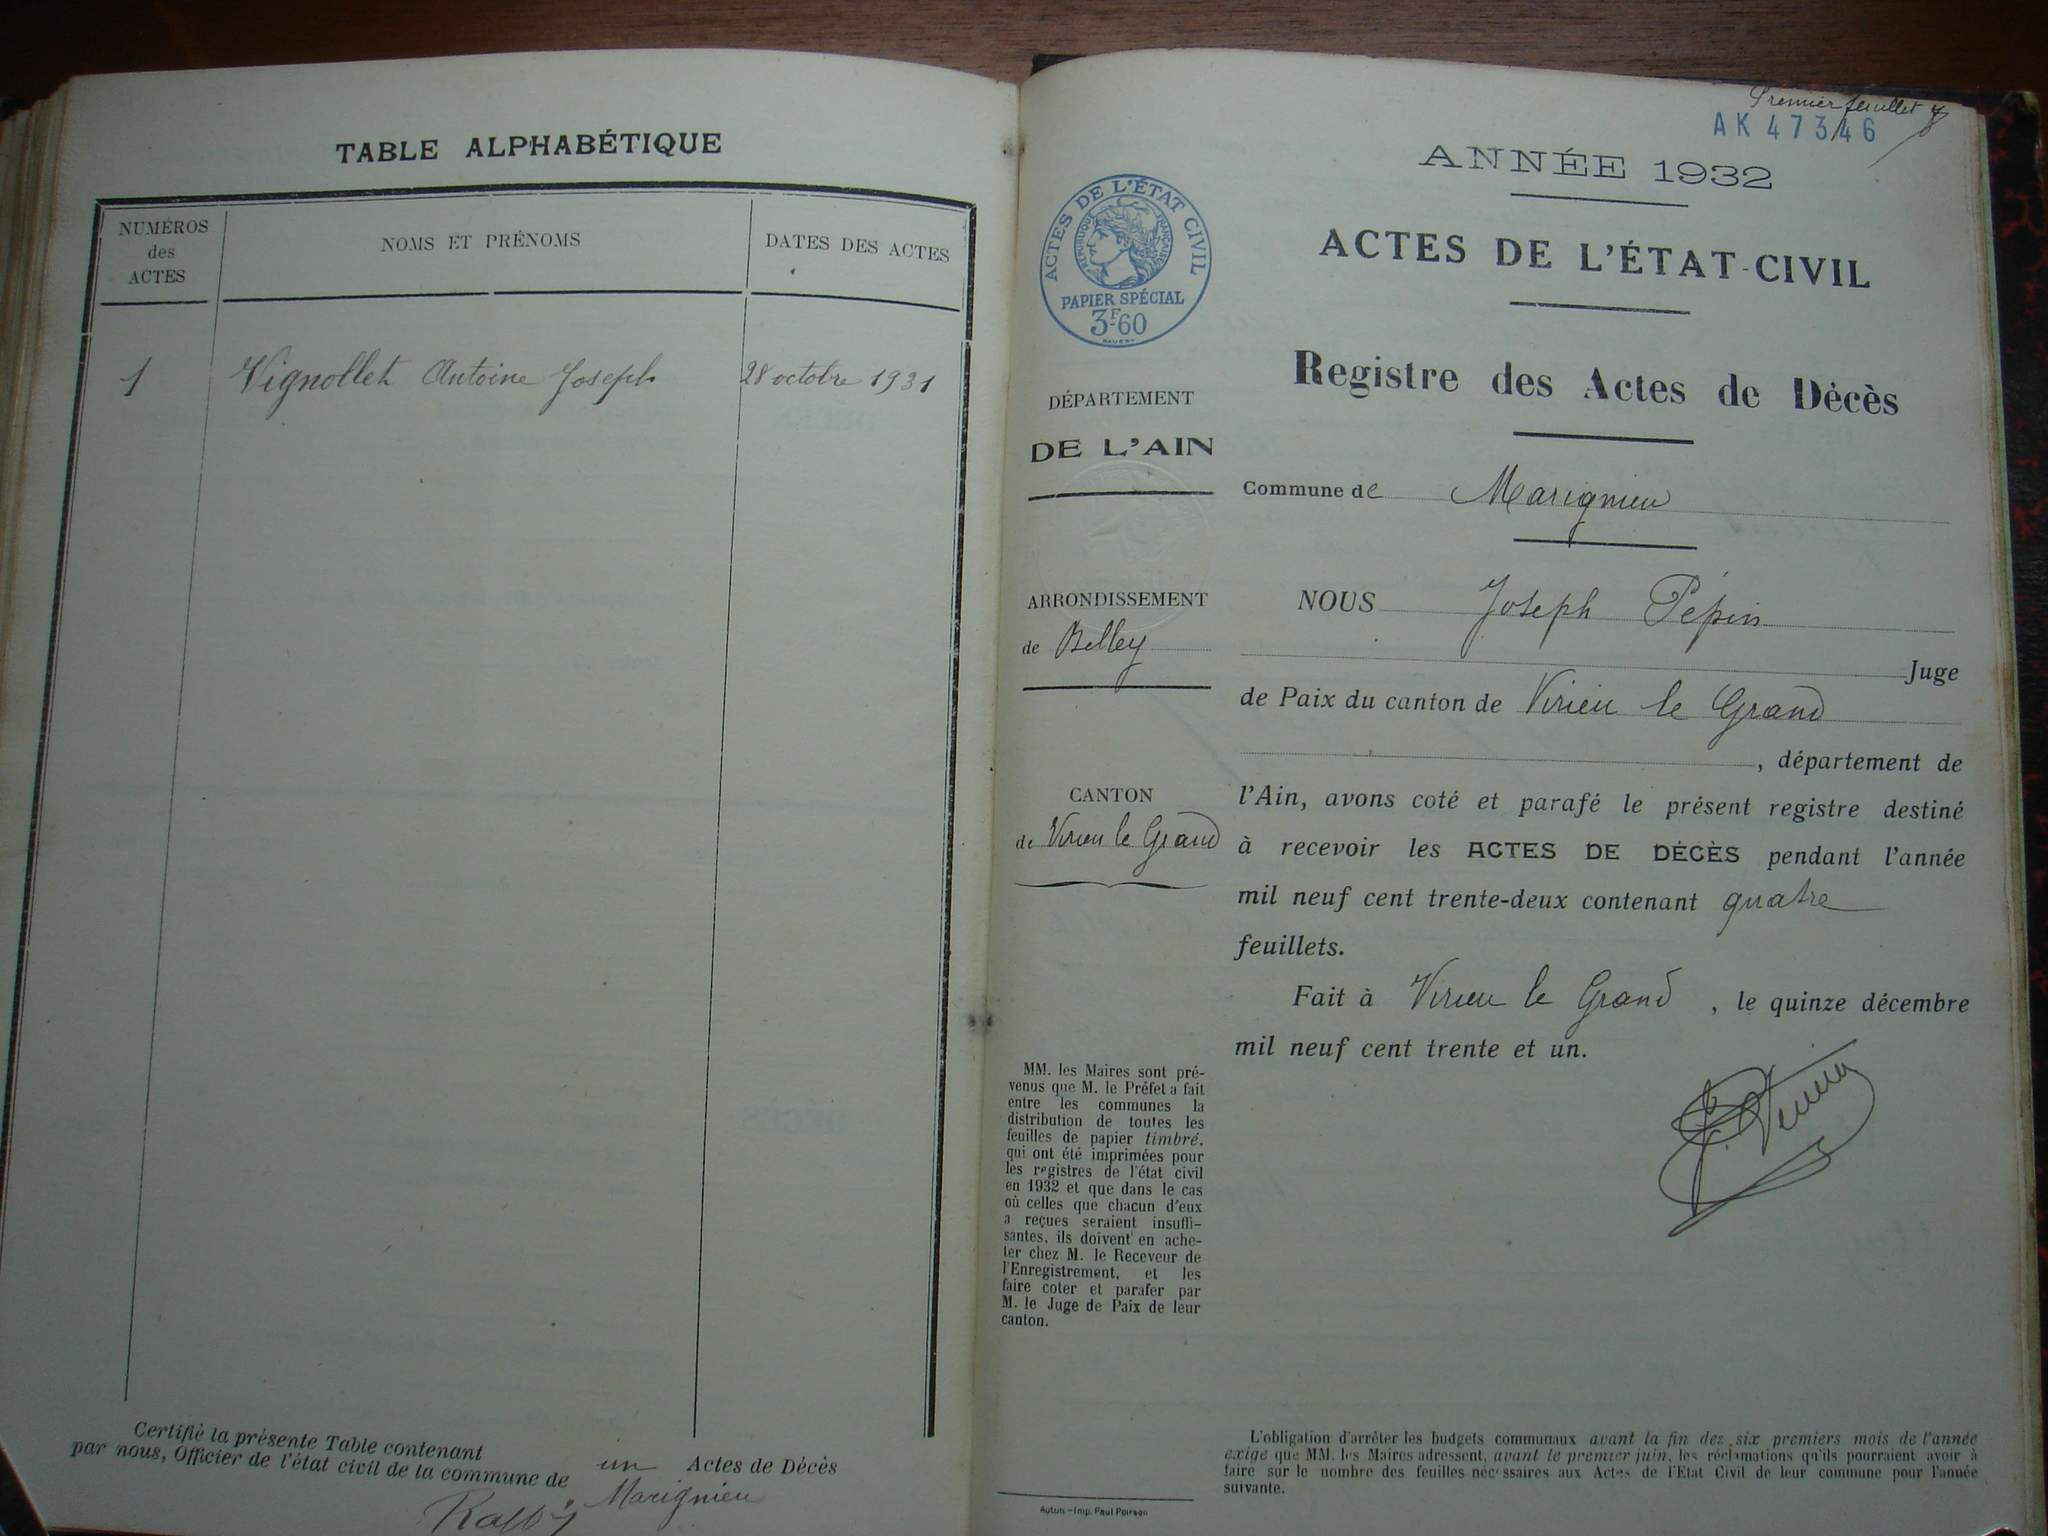 TABLE ALPHABÉTIQUE
NUMÉROS
des
ACTES
NOMS ET PRÉNOMS
DATES DES ACTES
1 Vignollet Antoine Joseph 28 octobre 1931
Certifié la présente Table contenant un Actes de Décès
par nous, Officier de l'état civil de la commune de Marignieu
Premier feuillet
AK 47346
ANNÉE 1932
ACTES DE L'ÉTAT CIVIL
RÉPUBLIQUE FRANÇAISE
PAPIER SPÉCIAL
3F-60
ACTES DE L'ÉTAT-CIVIL
Registre des Actes de Décès
DÉPARTEMENT
DE L'AIN
Commune de Marignieu
ARRONDISSEMENT
de Belley
NOUS Joseph Pépin
Juge
de Paix du canton de Virieu le Grand
, département de
CANTON
de Virieu le Grand
l'Ain, avons coté et parafé le présent registre destiné
à recevoir les ACTES DE DÉCÈS pendant l'année
mil neuf cent trente-deux contenant quatre
feuillets.
Fait à Virieu le Grand, le quinze décembre
mil neuf cent trente et un.
MM. les Maires sont pré-
venus que M. le Préfet a fait
entre les communes la
distribution de toutes les
feuilles de papier timbré,
qui ont été imprimées pour
les registres de l'état civil
en 1932 et que dans le cas
où celles que chacun d'eux
a reçues seraient insuffi-
santes, ils doivent en ache-
ter chez M. le Receveur de
l'Enregistrement, et les
faire coter et parafer par
M. le Juge de Paix de leur
canton.
L'obligation d'arrêter les budgets communaux avant la fin des six premiers mois de l'année
exige que MM. les Maires adressent, avant le premier juin, les réclamations qu'ils pourraient avoir à
faire sur le nombre des feuilles nécessaires aux Actes de l'Etat Civil de leur commune pour l'année
suivante.
Autun - Imp. Paul Poirson